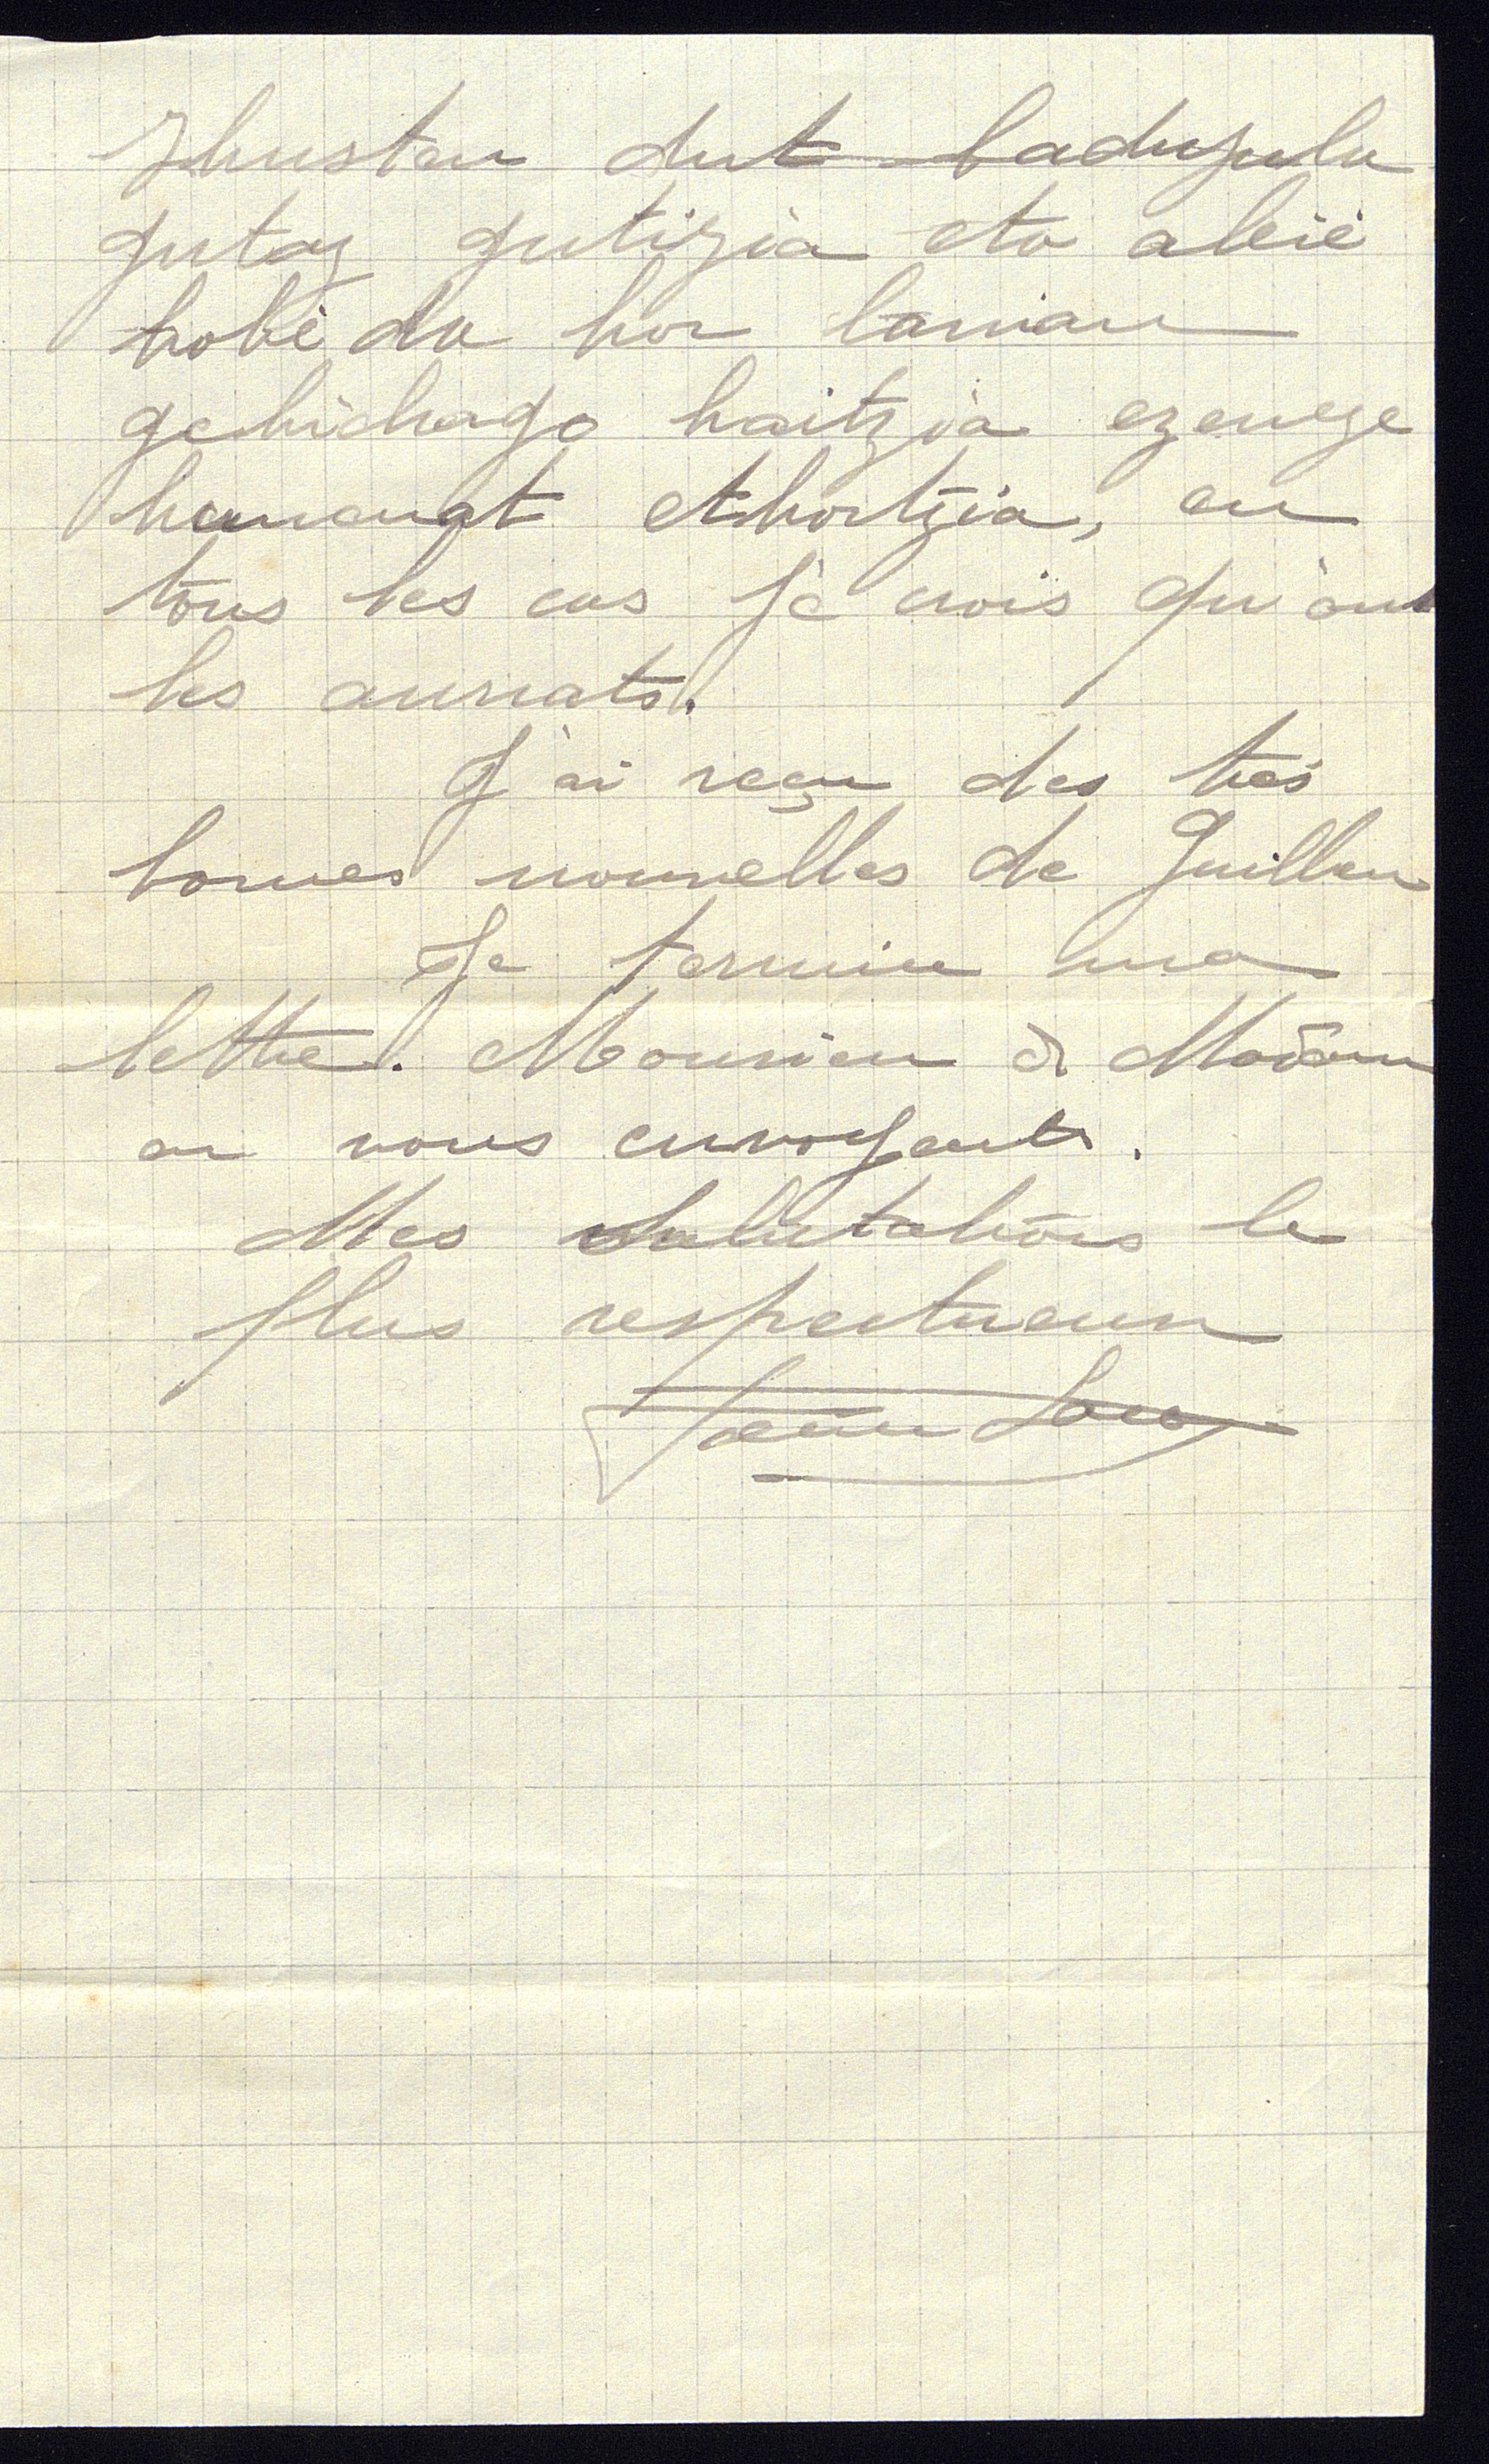 Ihusten dut baduzula
gutaz gutizia eta aleié
hobé da hor lanian
gehichago haitzia ezenez
hunenat ethortzia, en
tous les cas je crois qu'on
les aurats.
J'ai reçu des tres
bonnes nouvelles de Guillen
Je termine ma
lettre. Monsieu & Madame
en vous envoyants.
Mes Salutations le
plus respectueux